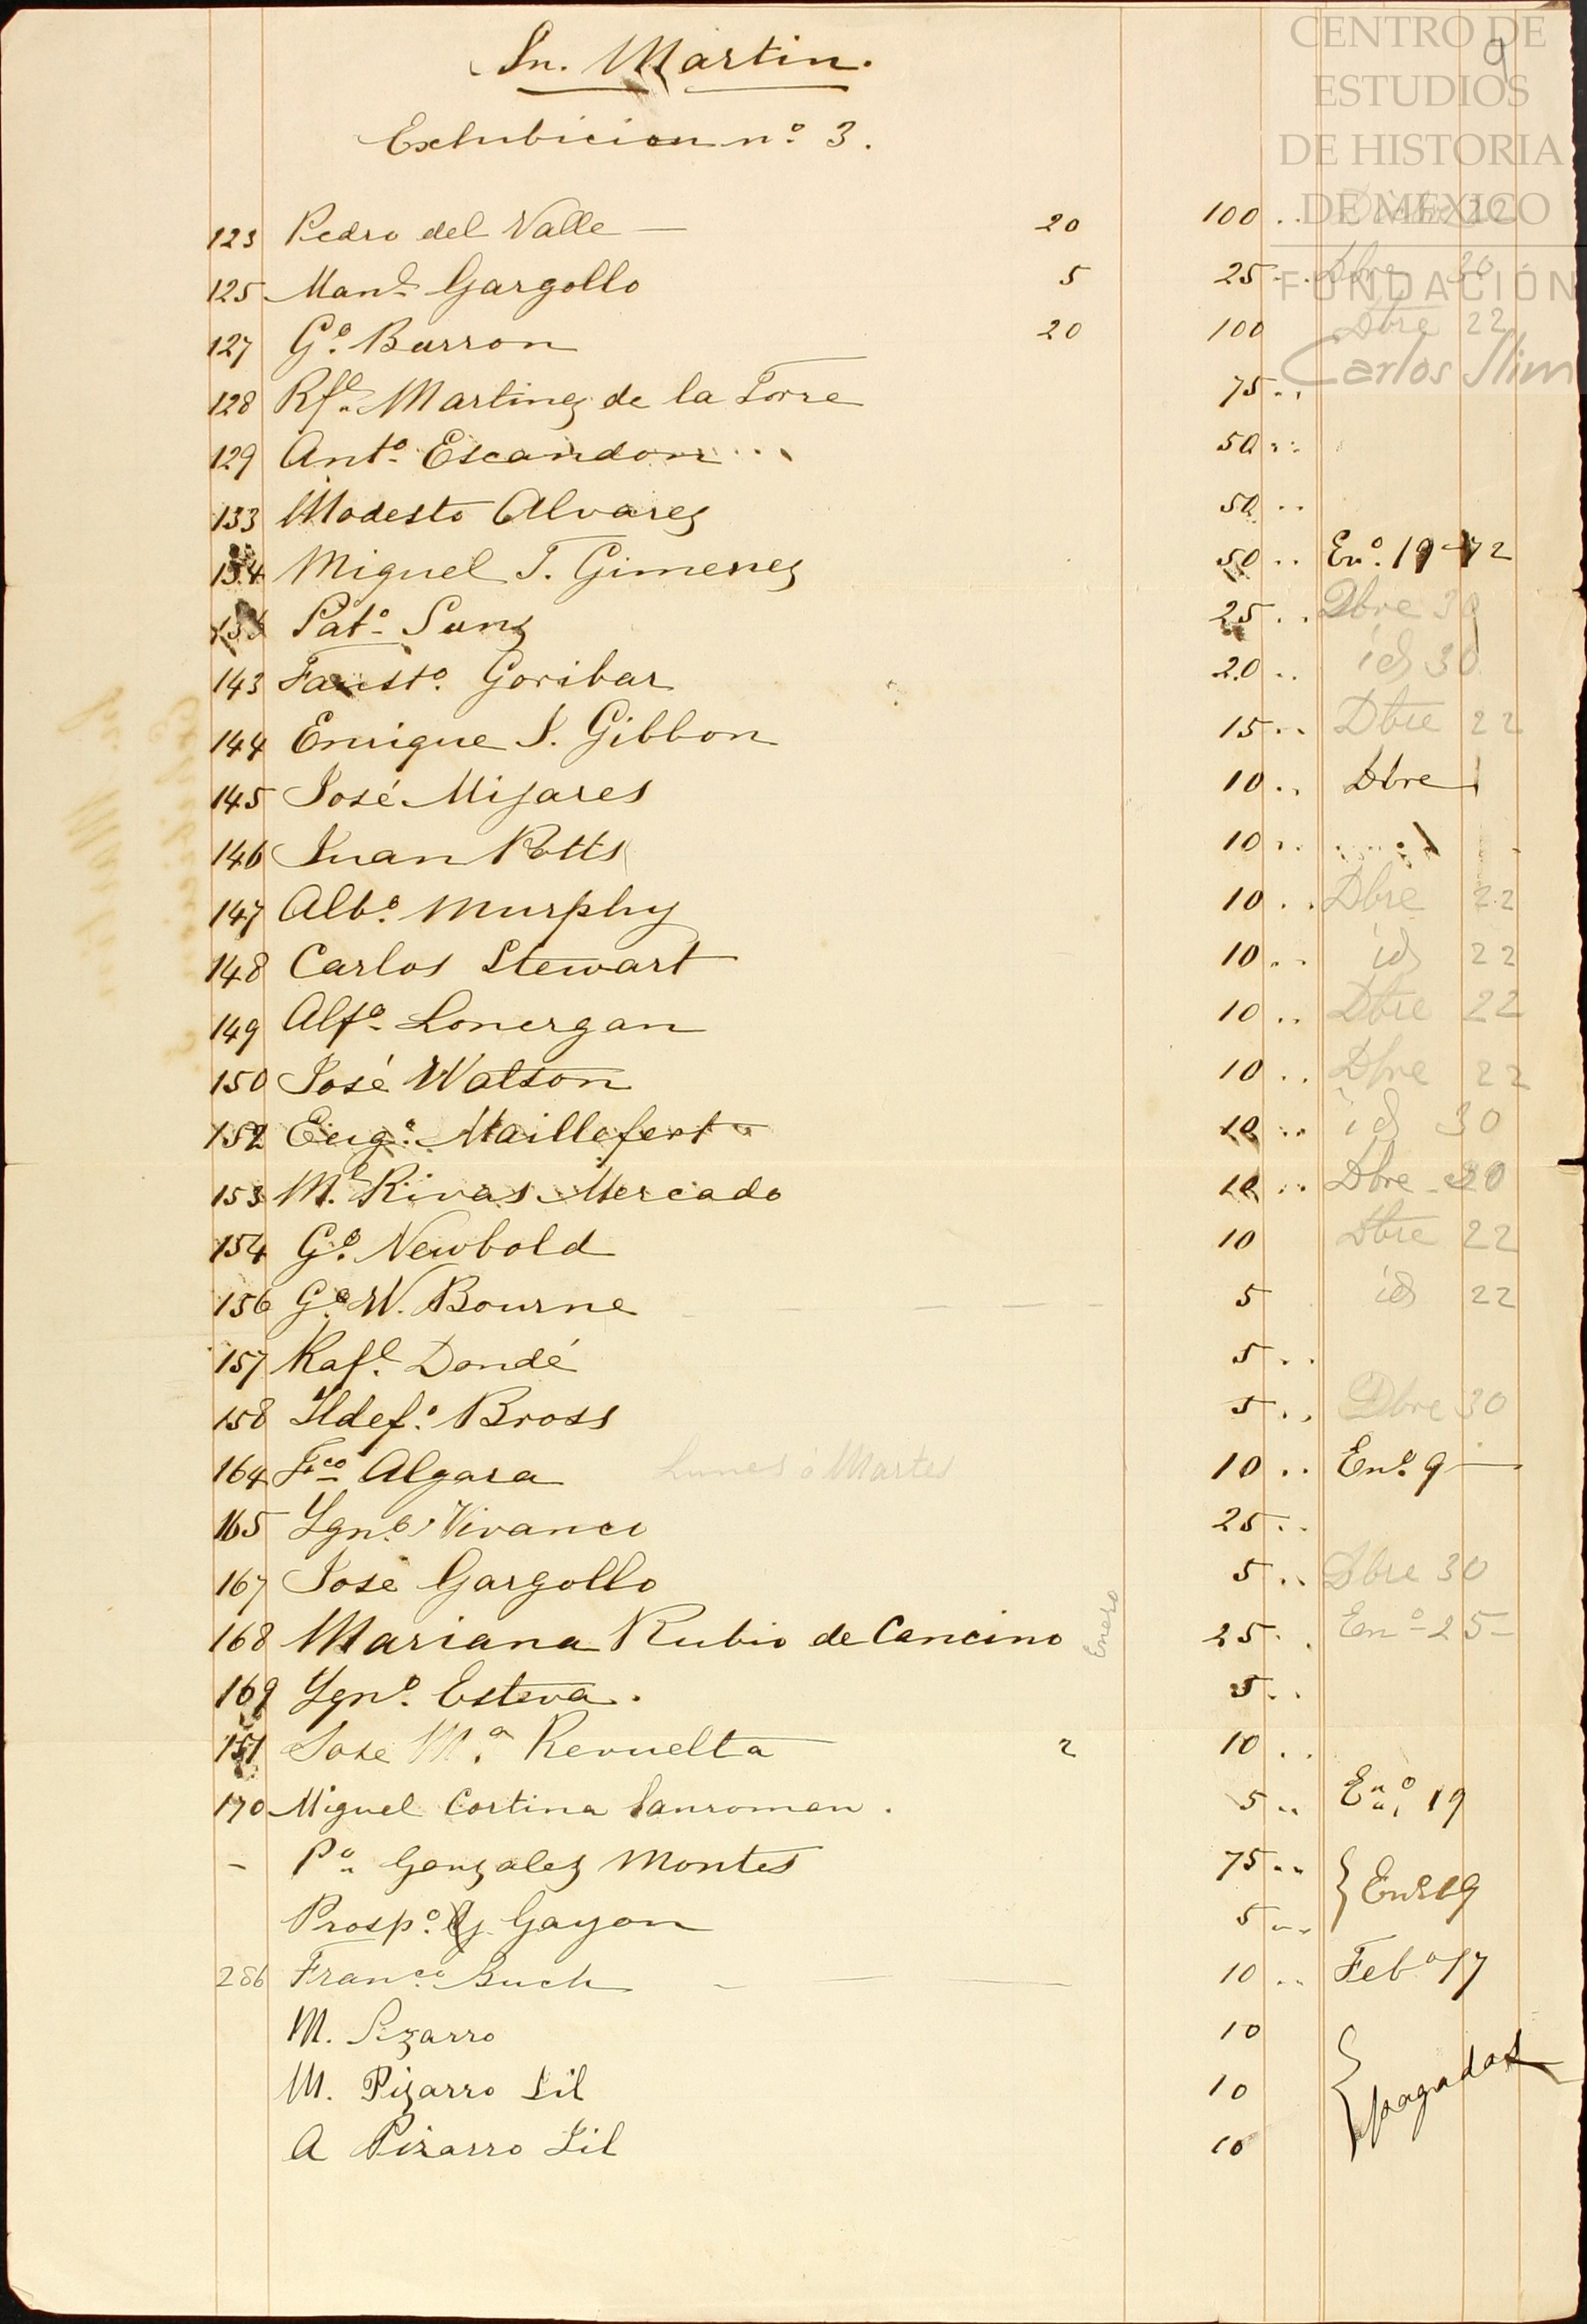 Sn. Martin.
Exhibicion nº 3.
9
CENTRO DE
ESTUDIOS
DE HISTORIA
DE MEXICO
FUNDACIÓN
Carlos Slim
123 Pedro del Valle — 20 100 .. Dbre 22
125 Manl Gargollo 5 25 .. Dbre 30
127 Gº. Barron 20 100 Dbre 22
128 Rfl. Martinez de la Torre 75 ..
129 Antº. Escandon ... 50 ..
133 Modesto Alvarez 50 ..
134 Miguel F. Gimenez 50 .. Enº. 19 - 72
Patº. Sanz 25 .. Dbre 30
143 Faustº. Goribar 20 .. id 30
144 Enrique S. Gibbon 15 .. Dbre 22
145 José Mijares 10 .. Dbre
146 Juan Potts 10 ..
147 Albº. Murphy 10 .. Dbre 22
148 Carlos Stewart 10 .. id 22
149 Alfº. Lonergan 10 .. Dbre 22
150 José Watson 10 .. Dbre 22
152 Eugº. Maillefert 10 .. id 30
153 Ml. Rivas Mercado 10 .. Dbre 20
154 Gº. Newbold 10 Dbre 22
156 Gº. W. Bourne 5 id 22
157 Rafl. Dondé 5 ..
158 Ildefº. Bross 5 .. Dbre 30
164 Fco Algara Lunes ó Martes 10 .. Enº. 9 —
165 Ygnº. Vivanco 25 ..
167 José Gargollo 5 .. Dbre 30
168 Mariana Rubio de Cancino Enero 25 .. Enº 25 -
169 Ygnº. Esteva. 5 ..
151 Jose Mª. Revuelta 2 10 ..
170 Miguel Cortina Sanroman. 5 .. Enº. 19
- Pº. Gonzalez Montes 75 .. } Enº 19
Prospº. G. Gayon 5 ..
286 Franco. Buch — 10 .. Febº 17
M. Pizarro 10
M. Pizarro Sil 10 } pagados
A Pizarro Sil 10